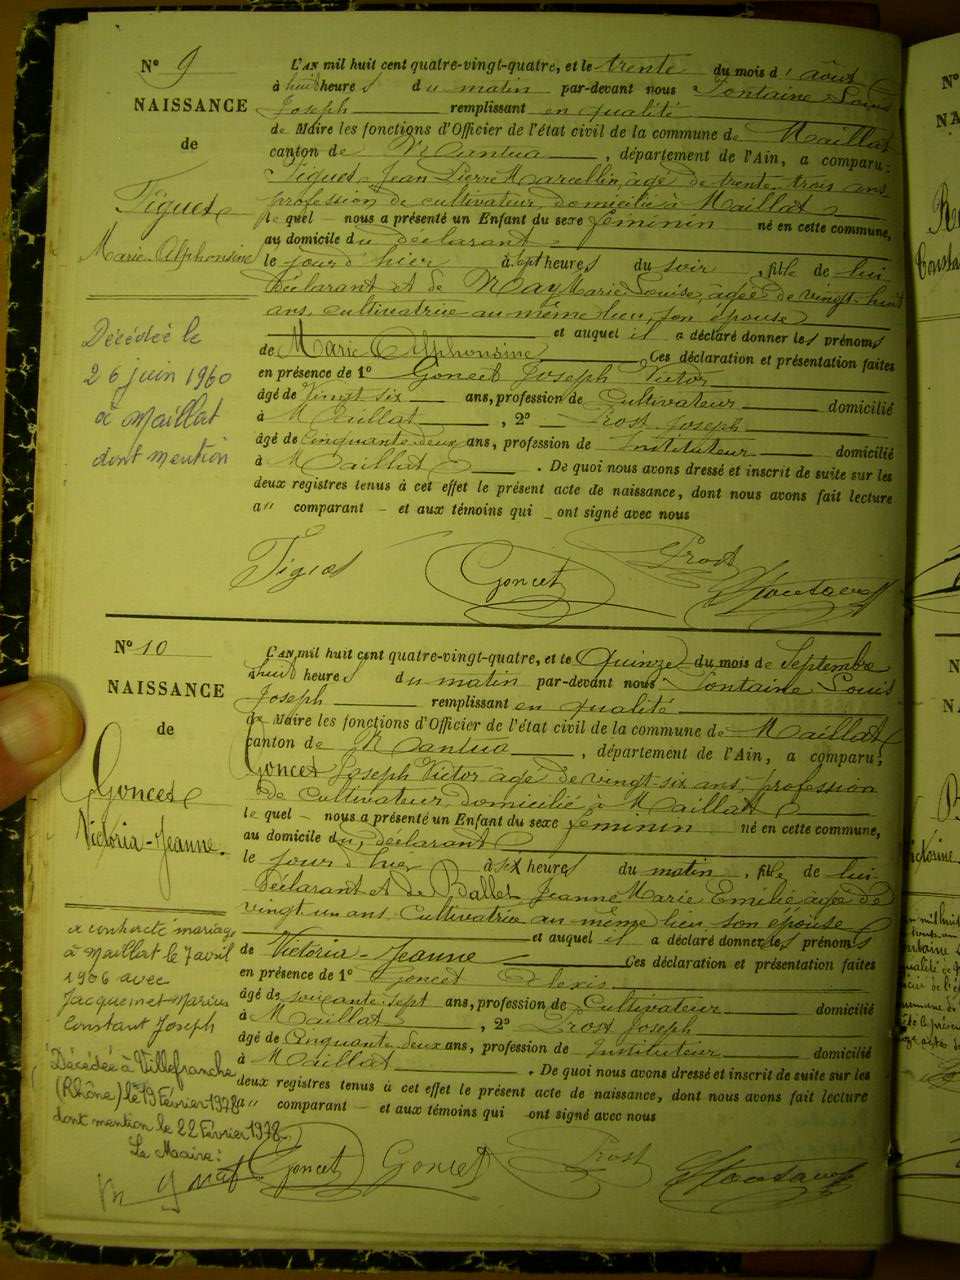 N° 9
NAISSANCE
de
Tiguet
Marie-Alphonsine
Décédée le
26 juin 1960
à Maillat
dont mention
L'AN mil huit cent quatre-vingt-quatre, et le trente du mois d'août
à huit heures du matin par-devant nous Fontaine Louis
Joseph remplissant en qualité
de Maire les fonctions d'Officier de l'état civil de la commune de Maillat
canton de Nantua, département de l'Ain, a comparu:
Tiguet Jean Pierre Marcellin, âgé de trente-trois ans
profession de cultivateur, domicilié à Maillat
lequel nous a présenté un Enfant du sexe féminin né en cette commune,
au domicile du déclarant
le jour d'hier à sept heures du soir, fille de lui
Déclarant et de May Marie Louise, âgée de vingt-huit
ans, cultivatrice au même lieu, son épouse
et auquel il a déclaré donner les prénoms
de Marie Alphonsine Ces déclaration et présentation faites
en présence de 1° Goncet Joseph Victor
âgé de Vingt six ans, profession de Cultivateur domicilié
à Maillat, 2° Prost Joseph
âgé de Cinquante deux ans, profession de Instituteur domicilié
à Maillat. De quoi nous avons dressé et inscrit de suite sur les
deux registres tenus à cet effet le présent acte de naissance, dont nous avons fait lecture
au comparant et aux témoins qui ont signé avec nous
Tiguet Goncet Prost Fontaine
N° 10
NAISSANCE
de
Goncet
Victoria-Jeanne.
a contracté mariage
à Maillat le 7 avril
1906 avec
Jacquemet Marius
Constant Joseph
Décédée à Villefranche
(Rhône) le 19 Février 1978
dont mention le 22 Février 1978.
Le Maire:
L'AN mil huit cent quatre-vingt-quatre, et le Quinze du mois de Septembre
à huit heures du matin par-devant nous Fontaine Louis
Joseph remplissant en qualité
de Maire les fonctions d'Officier de l'état civil de la commune de Maillat
canton de Nantua, département de l'Ain, a comparu:
Goncet Joseph Victor âgé de vingt-six ans, profession
de Cultivateur, domicilié à Maillat
lequel nous a présenté un Enfant du sexe féminin né en cette commune,
au domicile du déclarant
le jour d'hier à six heures du matin, fille de lui
Déclarant et de Ballet Jeanne Marie Emilie âgée de
vingt un ans Cultivatrice au même lieu son épouse
et auquel il a déclaré donner les prénoms
de Victoria-Jeanne Ces déclaration et présentation faites
en présence de 1° Goncet Alexis
âgé de soixante-sept ans, profession de Cultivateur domicilié
à Maillat, 2° Prost Joseph
âgé de Cinquante deux ans, profession de Instituteur domicilié
à Maillat. De quoi nous avons dressé et inscrit de suite sur les
deux registres tenus à cet effet le présent acte de naissance, dont nous avons fait lecture
au comparant et aux témoins qui ont signé avec nous
Goncet Goncet Prost Fontaine